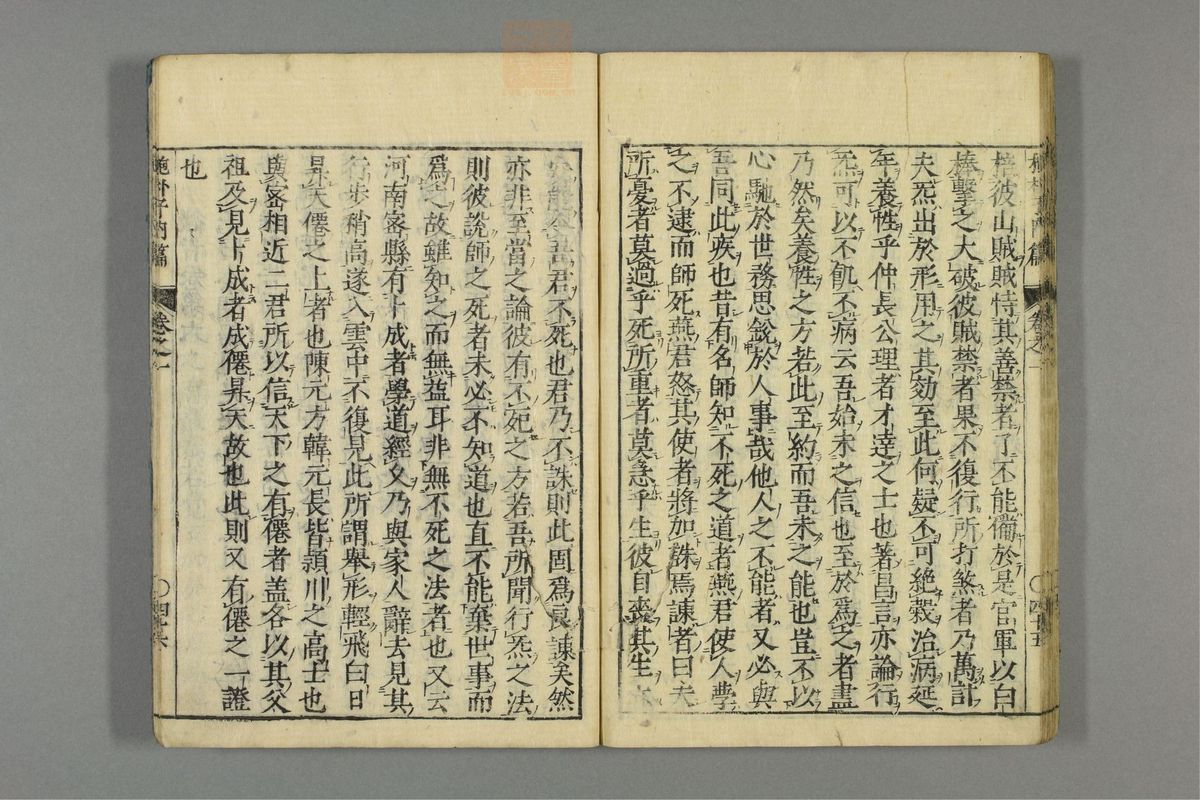 棓彼山賊賊恃其善禁者了不能備於是官軍以白
棒擊之大破彼賊禁者果不復行所打煞者乃萬計
夫炁出於形用之其効至此何疑不可絶穀治病延
年養性乎仲長公理者才達之士也著昌言亦論行
炁可以不飢不病云吾始未之信也至於爲之者盡
乃然矣養性之方若此至約而吾未之能也豈不以
心馳於世務思銳於人事哉他人之不能者又必與
吾同此疾也昔有名師知不死之道者燕君使人學
之不逮而師死燕君怒其使者將加誅焉諌者曰夫
所憂者莫過乎死所重者莫急乎生彼自喪其生
安能令吾君不死也君乃不誅則此固爲良諌矣然
亦非至當之論彼有不死之方若吾所聞行炁之法
則彼說師之死者未必不知道也直不能棄世事而
爲之故雖知之而無益耳非無不死之法者也又云
河南密縣有卜成者學道經久乃與家人辭去見其
行步稍高遂入雲中不復見此所謂舉形輕飛白日
昇天僊之上者也陳元方韓元長皆頴川之高士也
與密相近二君所以信天下之有僊者盖各以其父
祖及見卜成者成僊昇天故也此則又有僊之一證
也
抱朴子内篇 卷之一 〇四十六